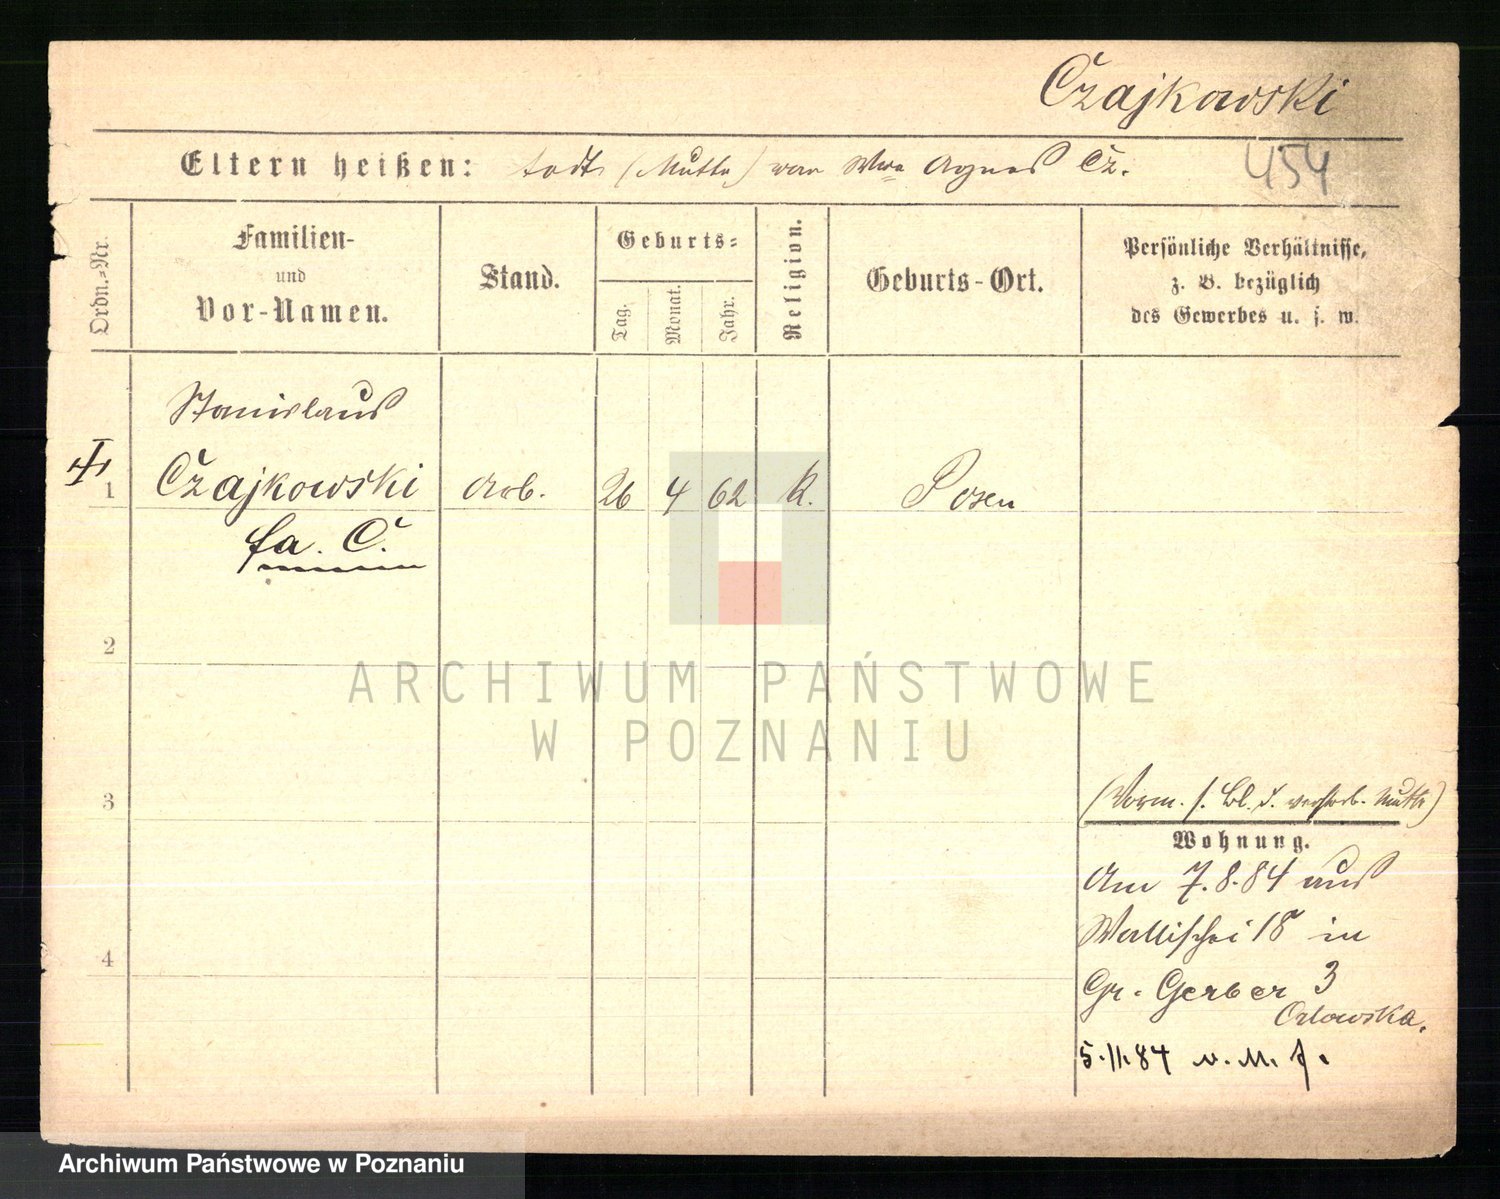 Czajkowski
454
Eltern heißen: todt (Mutter) war Wwe Agnes Cz.
Ordn.-Nr.
Familien-
und
Vor-Namen.
Stand.
Geburts-
Tag.
Monat.
Jahr.
Religion.
Geburts-Ort.
Persönliche Verhältnisse,
z. B. bezüglich
des Gewerbes u. s. w.
Stanislaus
1 Czajkowski Arb. 26 4 62 K. Posen
fa. C.
2
3
4
(Vorm. s. Bl. d. verstorb. Mutter)
Wohnung.
Am 7.8.84 aus
Wallischei 18 in
Gr. Gerber 3
Orlowska.
5.11.84 v. M. f.
ARCHIWUM PAŃSTWOWE
W POZNANIU
Archiwum Państwowe w Poznaniu